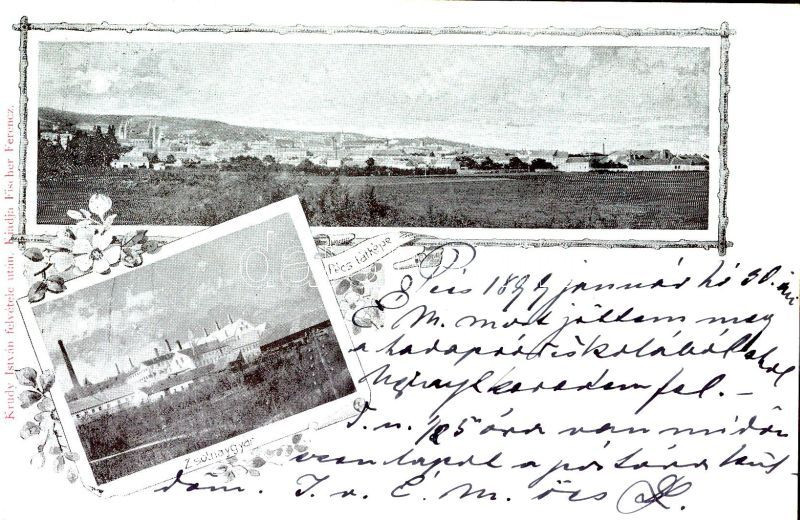 Krudy István felvétele után. Kiadja Fischer Ferencz.
Pécs látképe
Zsolnaygyár
Pécs 1899 január hó 30.
É. M. most jöttem meg
a hadapródiskolából ahol
fel. —
T. n. 1/2 5 óra van midőn
ezen lapot a postára kül-
döm. I. v. É. M. öcs K.